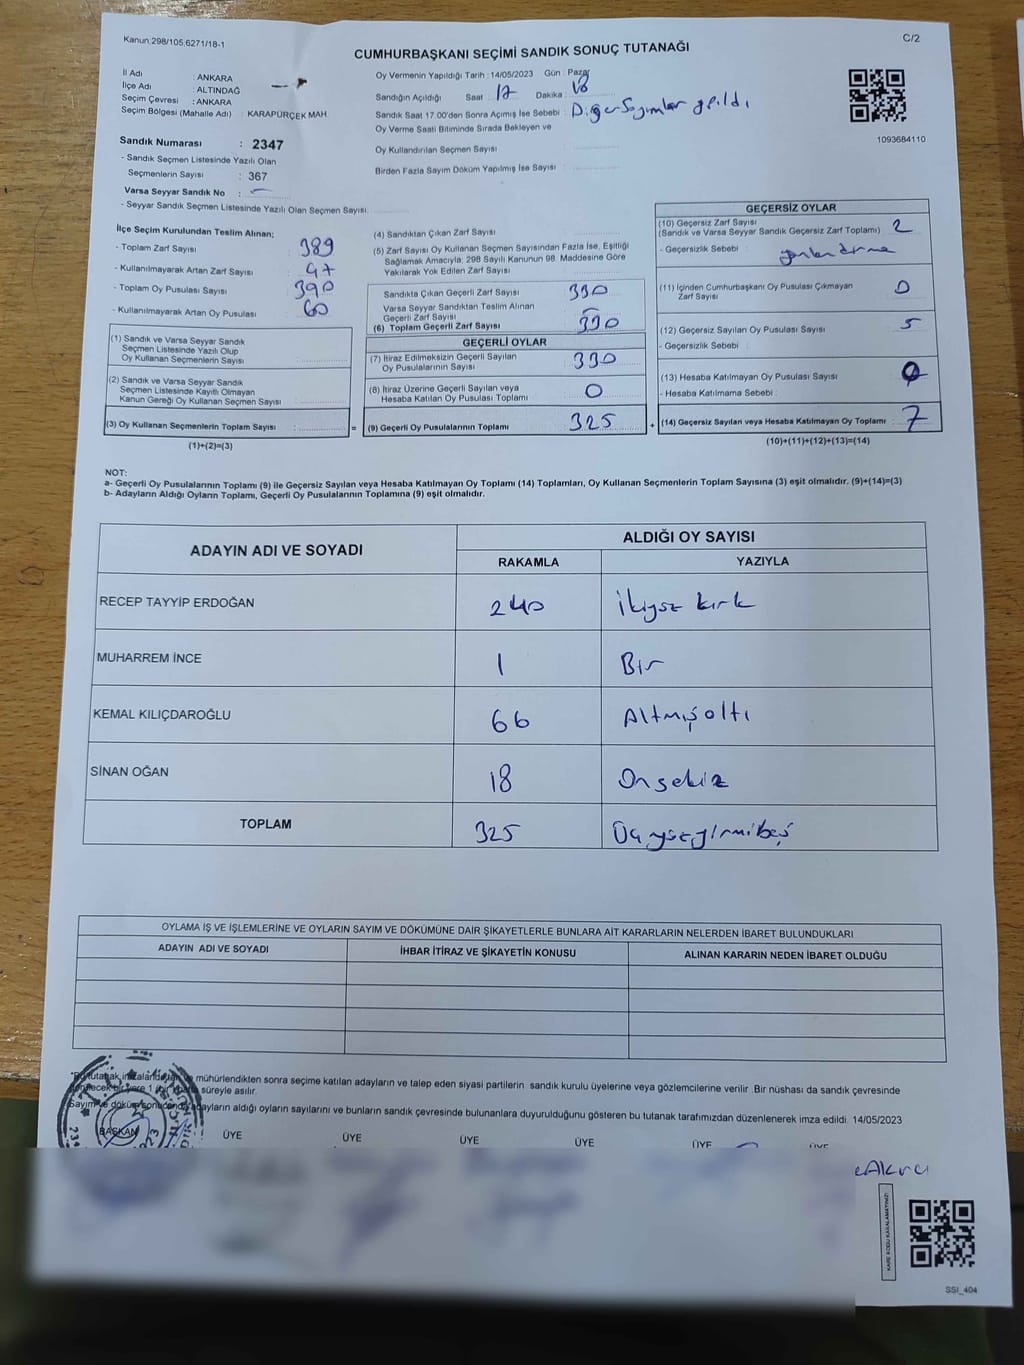 Kanun;298/105;6271/18-1
C/2
CUMHURBAŞKANI SEÇİMİ SANDIK SONUÇ TUTANAĞI
İl Adı : ANKARA
İlçe Adı : ALTINDAĞ
Seçim Çevresi : ANKARA
Seçim Bölgesi (Mahalle Adı) : KARAPÜRÇEK MAH.
Sandık Numarası : 2347
- Sandık Seçmen Listesinde Yazılı Olan
Seçmenlerin Sayısı : 367
Varsa Seyyar Sandık No : -
- Seyyar Sandık Seçmen Listesinde Yazılı Olan Seçmen Sayısı:
Oy Vermenin Yapıldığı Tarih : 14/05/2023 Gün : Pazar
Sandığın Açıldığı Saat 17 Dakika 18
Sandık Saat 17.00'den Sonra Açımış İse Sebebi : Diğer Sayımlar geldi
Oy Verme Saati Bitiminde Sırada Bekleyen ve
Oy Kullandırılan Seçmen Sayısı :
Birden Fazla Sayım Döküm Yapılmış İse Sayısı :
1093684110
İlçe Seçim Kurulundan Teslim Alınan;
- Toplam Zarf Sayısı : 389
- Kullanılmayarak Artan Zarf Sayısı : 47
- Toplam Oy Pusulası Sayısı : 390
- Kullanılmayarak Artan Oy Pusulası : 60
(1) Sandık ve Varsa Seyyar Sandık
Seçmen Listesinde Yazılı Olup
Oy Kullanan Seçmenlerin Sayısı :
(2) Sandık ve Varsa Seyyar Sandık
Seçmen Listesinde Kayıtlı Olmayan
Kanun Gereği Oy Kullanan Seçmen Sayısı :
(3) Oy Kullanan Seçmenlerin Toplam Sayısı :
(1)+(2)=(3)
(4) Sandıktan Çıkan Zarf Sayısı :
(5) Zarf Sayısı Oy Kullanan Seçmen Sayısından Fazla İse, Eşitliği
Sağlamak Amacıyla; 298 Sayılı Kanunun 98. Maddesine Göre
Yakılarak Yok Edilen Zarf Sayısı :
Sandıkta Çıkan Geçerli Zarf Sayısı : 330
Varsa Seyyar Sandıktan Teslim Alınan
Geçerli Zarf Sayısı : -
(6) Toplam Geçerli Zarf Sayısı : 330
GEÇERLİ OYLAR
(7) İtiraz Edilmeksizin Geçerli Sayılan
Oy Pusulalarının Sayısı : 330
(8) İtiraz Üzerine Geçerli Sayılan veya
Hesaba Katılan Oy Pusulası Toplamı : 0
= (9) Geçerli Oy Pusulalarının Toplamı : 325
GEÇERSİZ OYLAR
(10) Geçersiz Zarf Sayısı
(Sandık ve Varsa Seyyar Sandık Geçersiz Zarf Toplamı) : 2
- Geçersizlik Sebebi :
(11) İçinden Cumhurbaşkanı Oy Pusulası Çıkmayan
Zarf Sayısı : 0
(12) Geçersiz Sayılan Oy Pusulası Sayısı : 5
- Geçersizlik Sebebi :
(13) Hesaba Katılmayan Oy Pusulası Sayısı :
- Hesaba Katılmama Sebebi :
+ (14) Geçersiz Sayılan veya Hesaba Katılmayan Oy Toplamı : 7
(10)+(11)+(12)+(13)=(14)
NOT:
a- Geçerli Oy Pusulalarının Toplamı (9) ile Geçersiz Sayılan veya Hesaba Katılmayan Oy Toplamı (14) Toplamları, Oy Kullanan Seçmenlerin Toplam Sayısına (3) eşit olmalıdır. (9)+(14)=(3)
b- Adayların Aldığı Oyların Toplamı, Geçerli Oy Pusulalarının Toplamına (9) eşit olmalıdır.
ADAYIN ADI VE SOYADI ALDIĞI OY SAYISI
RAKAMLA YAZIYLA
RECEP TAYYİP ERDOĞAN 240 İkiyüz kırk
MUHARREM İNCE 1 Bir
KEMAL KILIÇDAROĞLU 66 Altmışaltı
SİNAN OĞAN 18 Onsekiz
TOPLAM 325 Üçyüzyirmibeş
OYLAMA İŞ VE İŞLEMLERİNE VE OYLARIN SAYIM VE DÖKÜMÜNE DAİR ŞİKAYETLERLE BUNLARA AİT KARARLARIN NELERDEN İBARET BULUNDUKLARI
ADAYIN ADI VE SOYADI İHBAR İTİRAZ VE ŞİKAYETİN KONUSU ALINAN KARARIN NEDEN İBARET OLDUĞU
mühürlendikten sonra seçime katılan adayların ve talep eden siyasi partilerin sandık kurulu üyelerine veya gözlemcilerine verilir .Bir nüshası da sandık çevresinde
süreyle asılır.
Sayım ve döküm sonucunda adayların aldığı oyların sayılarını ve bunların sandık çevresinde bulunanlara duyurulduğunu gösteren bu tutanak tarafımızdan düzenlenerek imza edildi. 14/05/2023
BAŞKAN ÜYE ÜYE ÜYE ÜYE ÜYE ÜYE
KARE KODU KARALAMAYINIZ!
SSİ_404